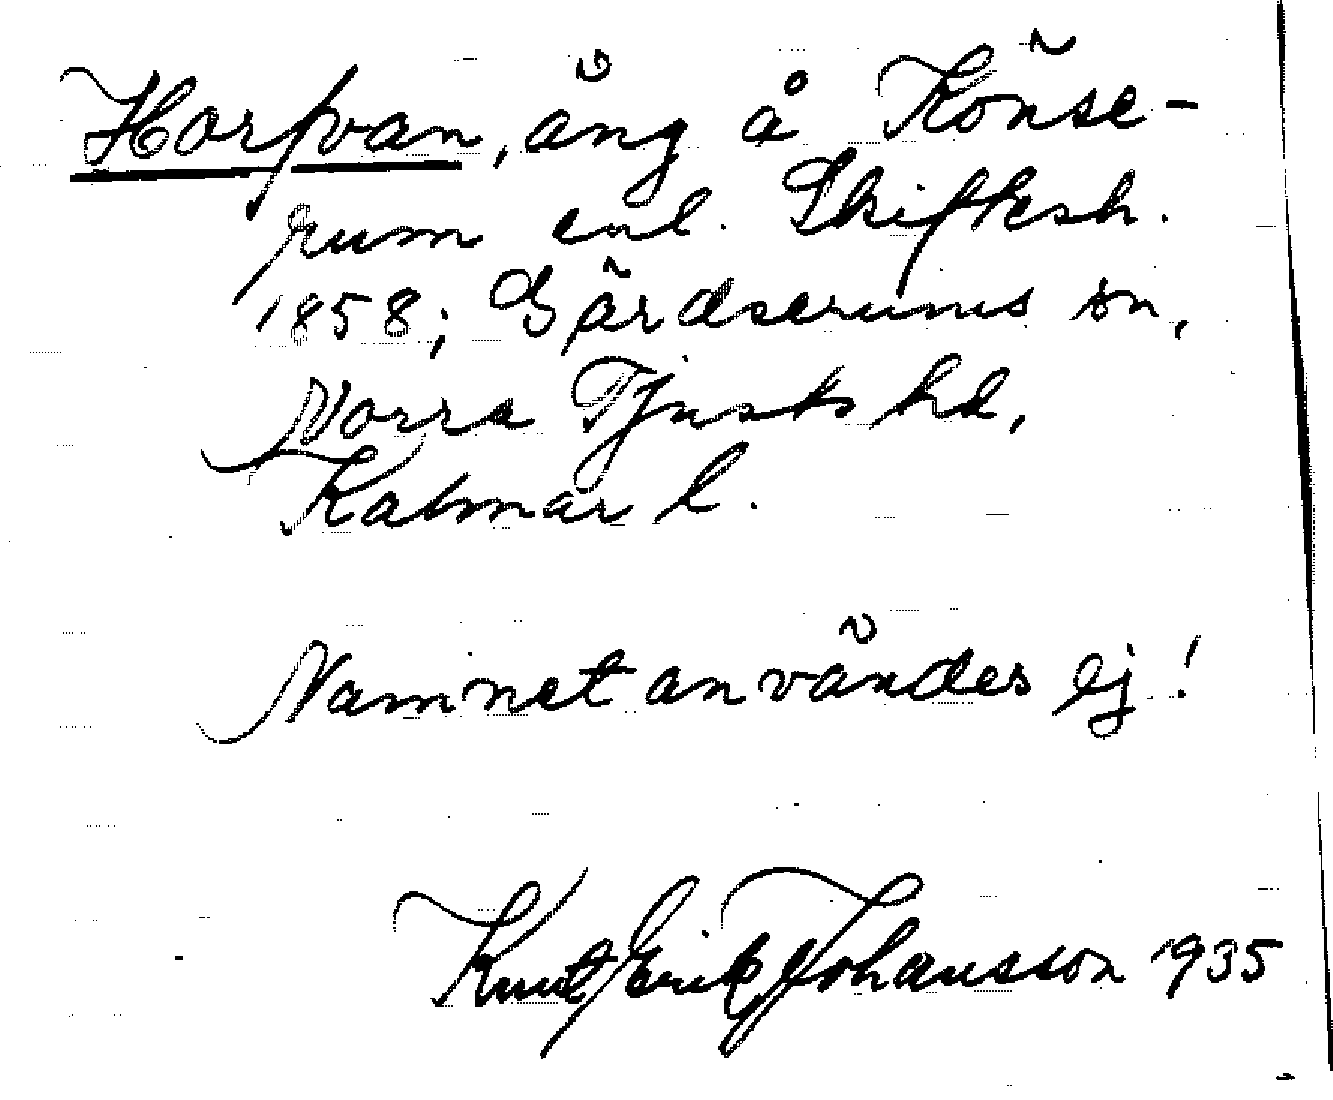 Horfvan, äng å Könse-
rum enl. Skiftesh.
1858; Gärdserums sn,
Norra Tjusts hd,
Kalmar l.
Namnet användes ej!
Knut Erik Johansson 1935